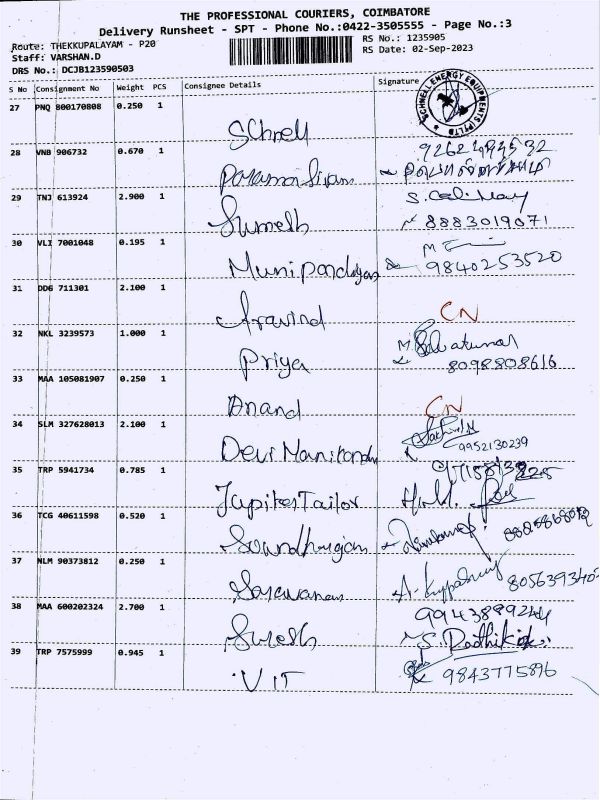 THE PROFESSIONAL COURIERS, COIMBATORE
Delivery Runsheet - SPT - Phone No.:0422-3505555 - Page No.:3
Route: THEKKUPALAYAM - P20
RS No.: 1235905
Staff: VARSHAN.D
RS Date: 02-Sep-2023
DRS No.: DCJB123590503
S No Consignment No Weight PCS Consignee Details Signature
SCHNELL ENERGY EQUIPMENTS (P) LTD
27 PNQ 800170808 0.250 1 Schnell
28 VNB 906732 0.670 1 Paramasivam
29 TNJ 613924 2.900 1 Sumesh 8883019071
30 VLI 7001048 0.195 1 Munipandiyan 9840253520
31 DDG 711301 2.100 1 Aravind CN
32 NKL 3239573 1.000 1 Priya 8098808616
33 MAA 105081907 0.250 1 Anand CN
34 SLM 327628013 2.100 1 Devi Manikandan 9952130239
35 TRP 5941734 0.785 1 Jupiter Tailor
36 TCG 40611598 0.520 1
37 NLM 90373812 0.250 1 Saravanan
38 MAA 600202324 2.700 1 Suresh
39 TRP 7575999 0.945 1 VIT 9843775896